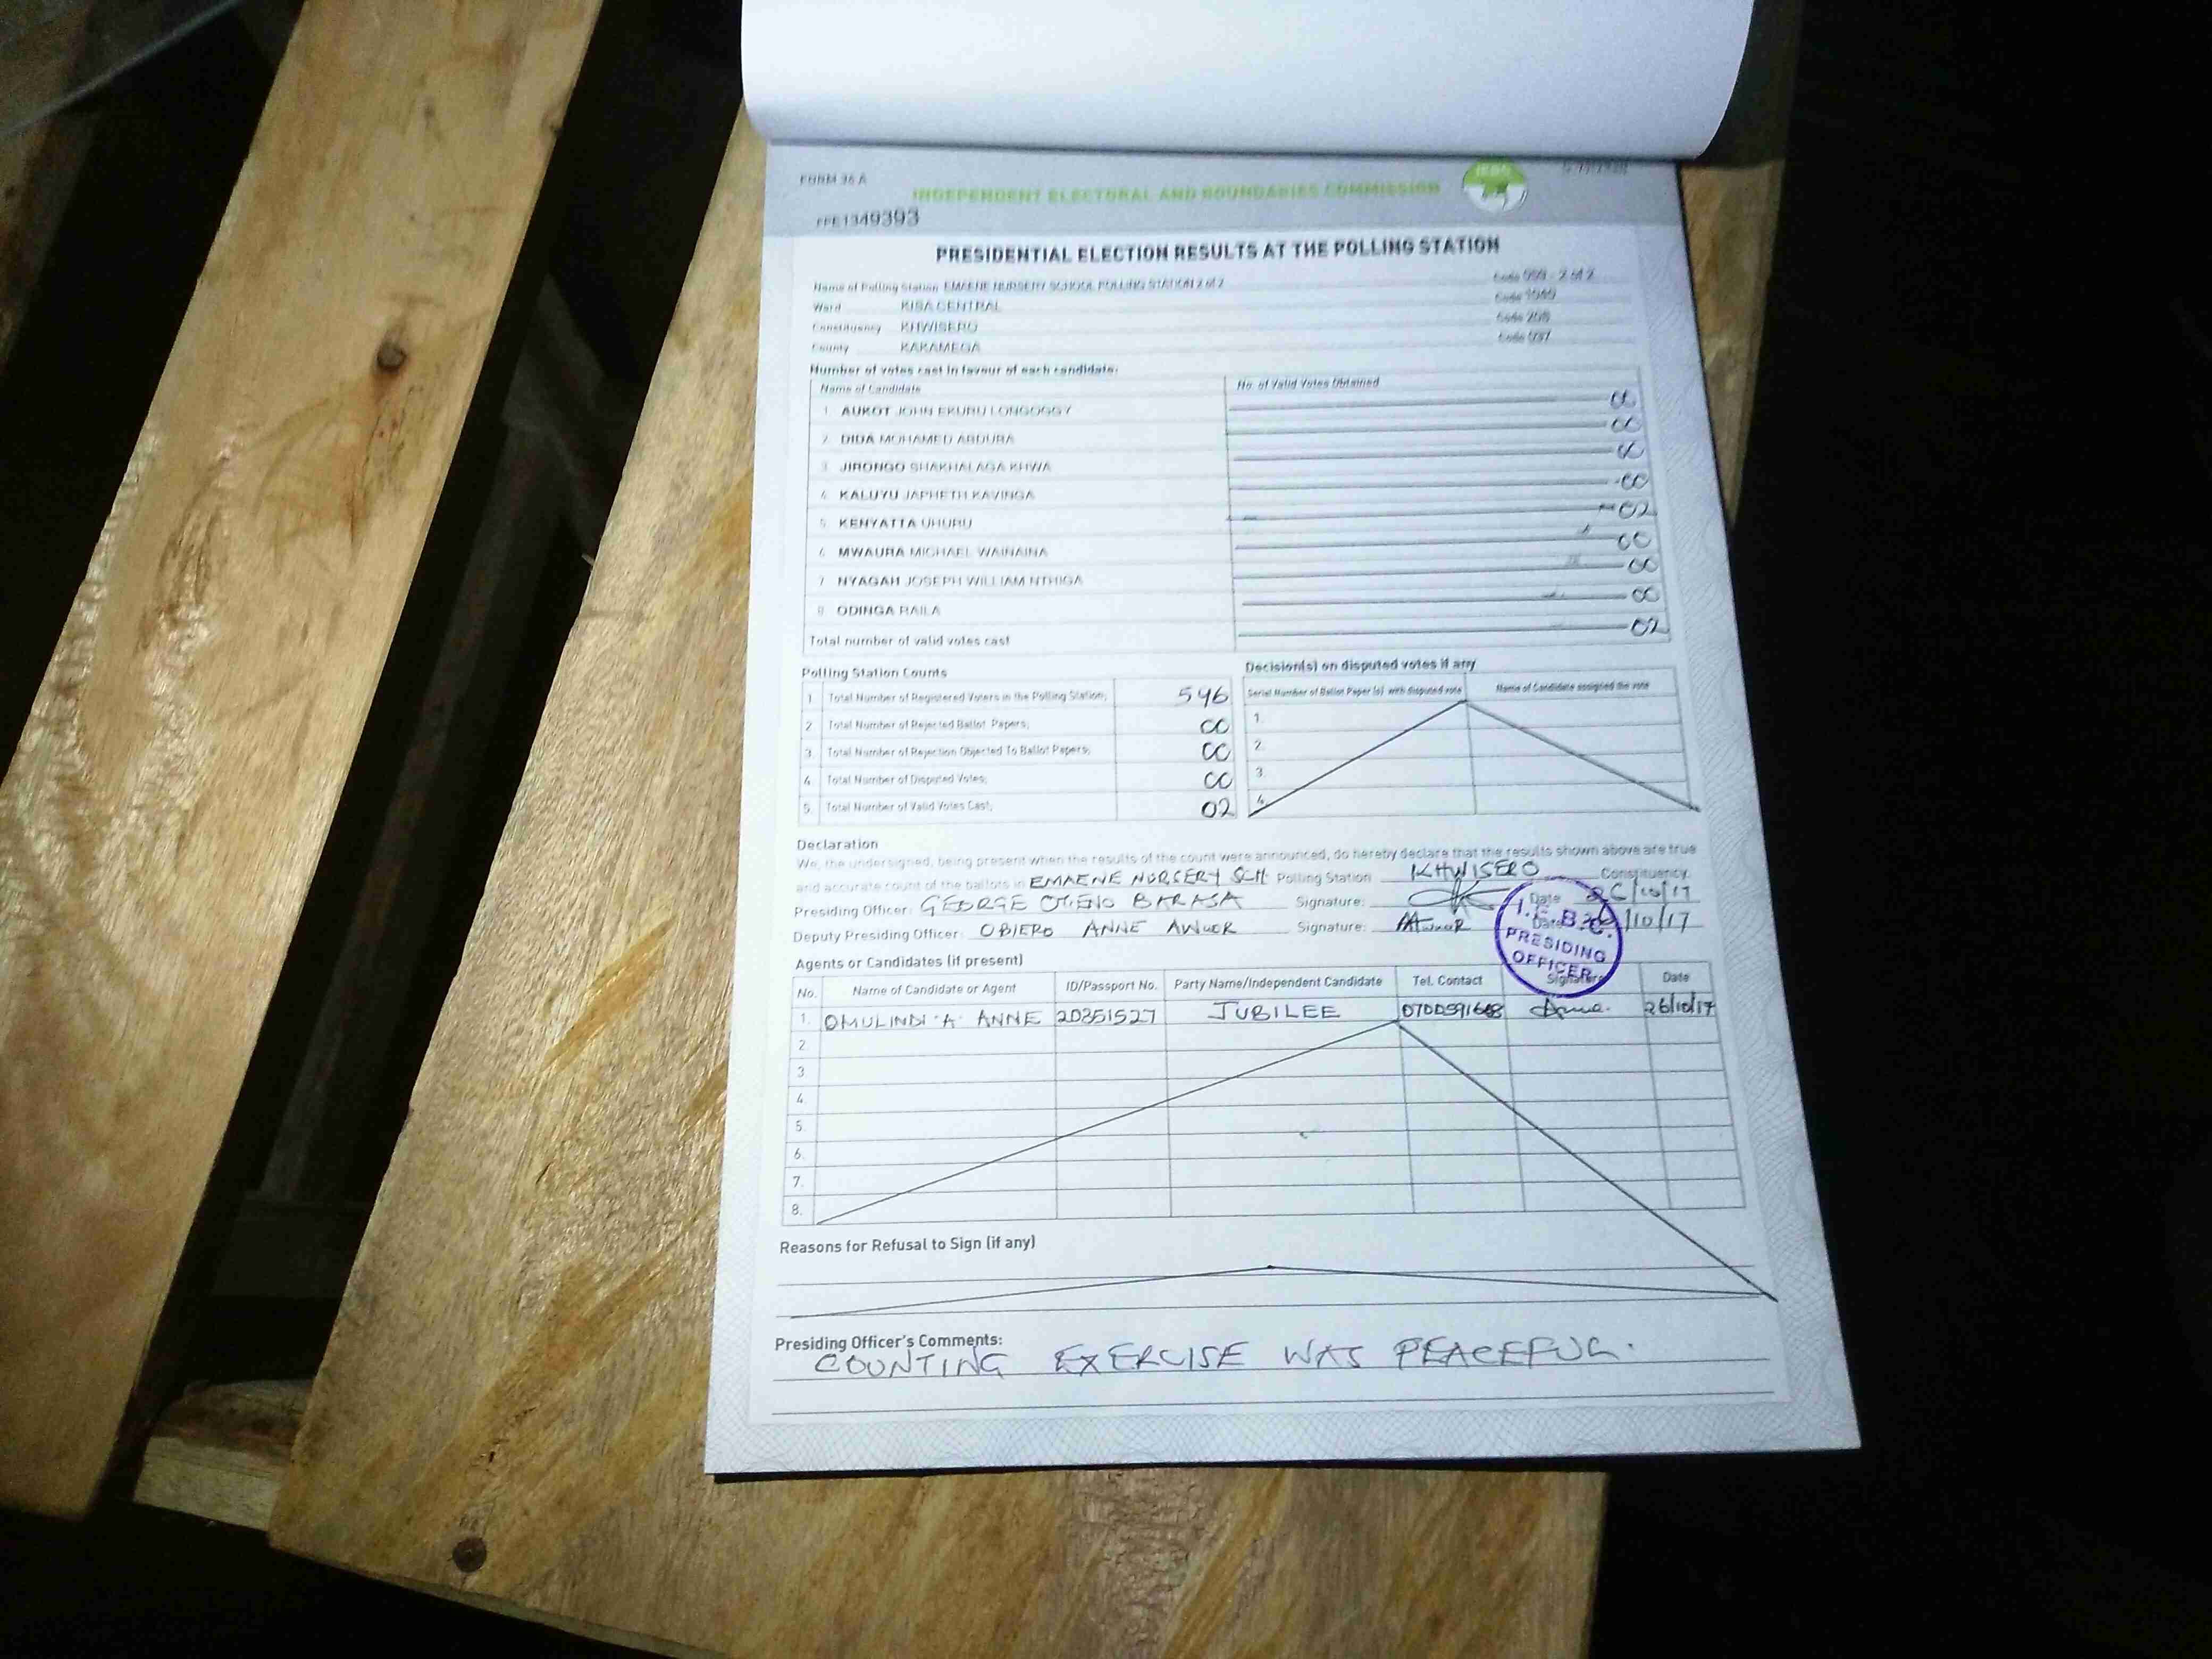 FORM 34 A
INDEPENDENT ELECTORAL AND BOUNDARIES COMMISSION
IEBC
PRESIDENTIAL ELECTION RESULTS AT THE POLLING STATION
Name of Polling Station EMAENE NURSERY SCHOOL POLLING STATION 2 of 2
Ward KISA CENTRAL
Constituency KHWISERO
County KAKAMEGA
Number of votes cast in favour of each candidate:
Name of Candidate No. of Valid Votes Obtained
1. AUKOT JOHN EKURU LONGOGGY 00
2. DIDA MOHAMED ABDUBA 00
3. JIRONGO SHAKHALAGA KHWA 00
4. KALUYU JAPHETH KAVINGA 00
5. KENYATTA UHURU 02
6. MWAURA MICHAEL WAINAINA 00
7. NYAGAH JOSEPH WILLIAM NTHIGA 00
8. ODINGA RAILA 00
Total number of valid votes cast 02
Polling Station Counts
1. Total Number of Registered Voters in the Polling Station; 546
2. Total Number of Rejected Ballot Papers; 00
3. Total Number of Rejection Objected To Ballot Papers; 00
4. Total Number of Disputed Votes; 00
5. Total Number of Valid Votes Cast; 02
Decision(s) on disputed votes if any
Serial Number of Ballot Paper (s) with disputed vote Name of Candidate assigned the vote
1.
2.
3.
4.
Declaration
We, the undersigned, being present when the results of the count were announced, do hereby declare that the results shown above are true
and accurate count of the ballots in EMAENE NURSERY SCH. Polling Station KHWISERO Constituency.
Presiding Officer: GEORGE OTIENO BARASA Signature: Date 26/10/17
Deputy Presiding Officer: OBIERO ANNE AWUOR Signature: AAwuoR Date 26/10/17
I.E.B.C.
PRESIDING
OFFICER
Agents or Candidates (if present)
No. Name of Candidate or Agent ID/Passport No. Party Name/Independent Candidate Tel. Contact Signature Date
1. OMULINDI A. ANNE 20351527 JUBILEE 26/10/17
2.
3.
4.
5.
6.
7.
8.
Reasons for Refusal to Sign (if any)
Presiding Officer's Comments:
COUNTING EXERCISE WAS PEACEFUL.